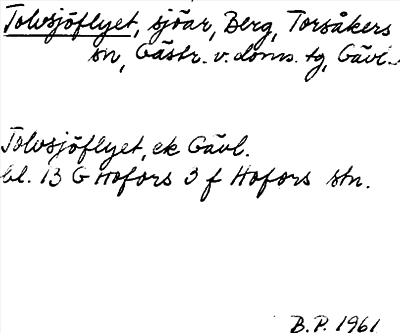 Tolvsjöflyet, sjöar, Berg, Torsåkers
sn, Gästr. v. doms. tg, Gävl.
Tolvsjöflyet, ek Gävl.
bl. 13 G Hofors 3 f Hofors stn.
B.P. 1961